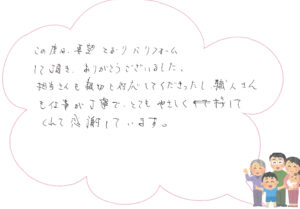 この度は、希望どおりリフォーム
して頂き、ありがとうございました。
担当さんも親切に対応してくださったし、職人さん
も仕事が丁寧で、とてもやさしく
くれて感謝しています。